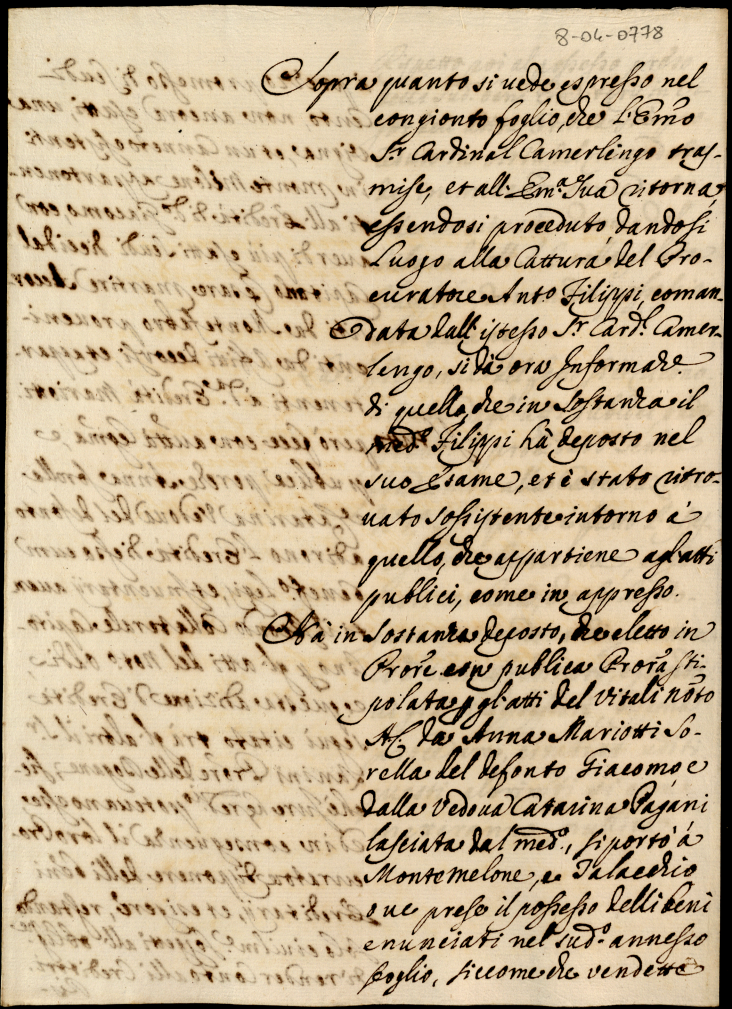 8-04-0778
Sopra quanto si vede espresso nel
congionto foglio, che l'Emo
Sr Cardinal Camerlengo tras-
mise, et all' Ema Sua ritorna,
essendosi proceduto dandosi
Luogo alla Cattura del Pro-
curatore Anto Filippi, coman-
data dall' istesso Sr Card. Camer-
lengo, si dà ora Informaz.e
di quello, che in Sostanza il
med.o Filippi hà deposto nel
suo Esame, et è stato ritro-
vato sossistente intorno à
quello, che appartiene agl'atti
publici, come in appresso.
Hà in Sostanza deposto, che eletto in
Prore con publica Prora sti-
polata p gl'atti del Vitali noto
AC da Anna Mariotti So-
rella del defonto Giacomo e
dalla Vedova Catarina Pagani
lasciata dal med.o, si portò à
Montemelone, e
ove prese il possesso delli beni
enunciati nel sud.o annesso
foglio, siccome che vendette